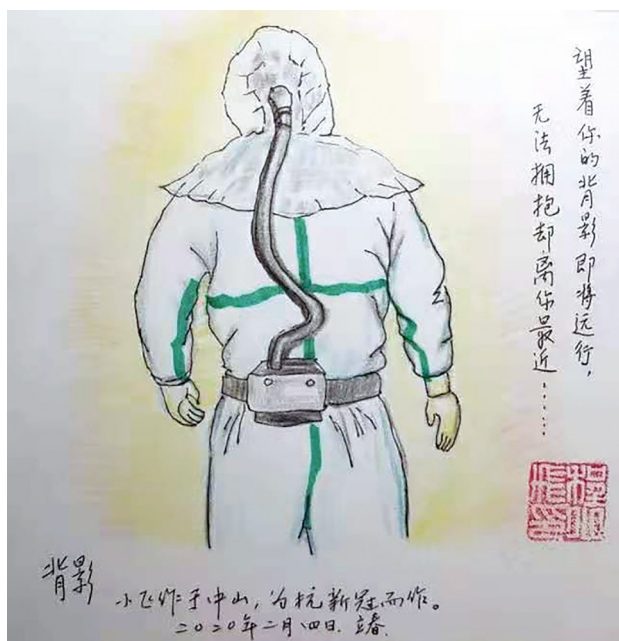 望着你的背影即将远行，
无法拥抱却离你最近……
背影
小飞作于中山，为抗新冠而作。
二〇二〇年二月四日.立春.